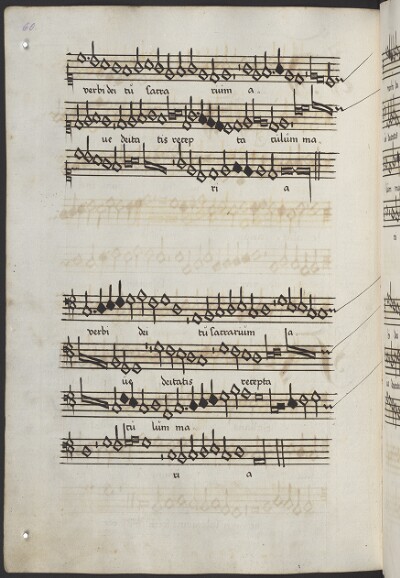 66.
verbi dei tū sacra rium a.
ue deita tis recep ta culum ma.
ri a
verbi dei tū sacrarium a
ue deitatis recepta
cu lum ma
ri a